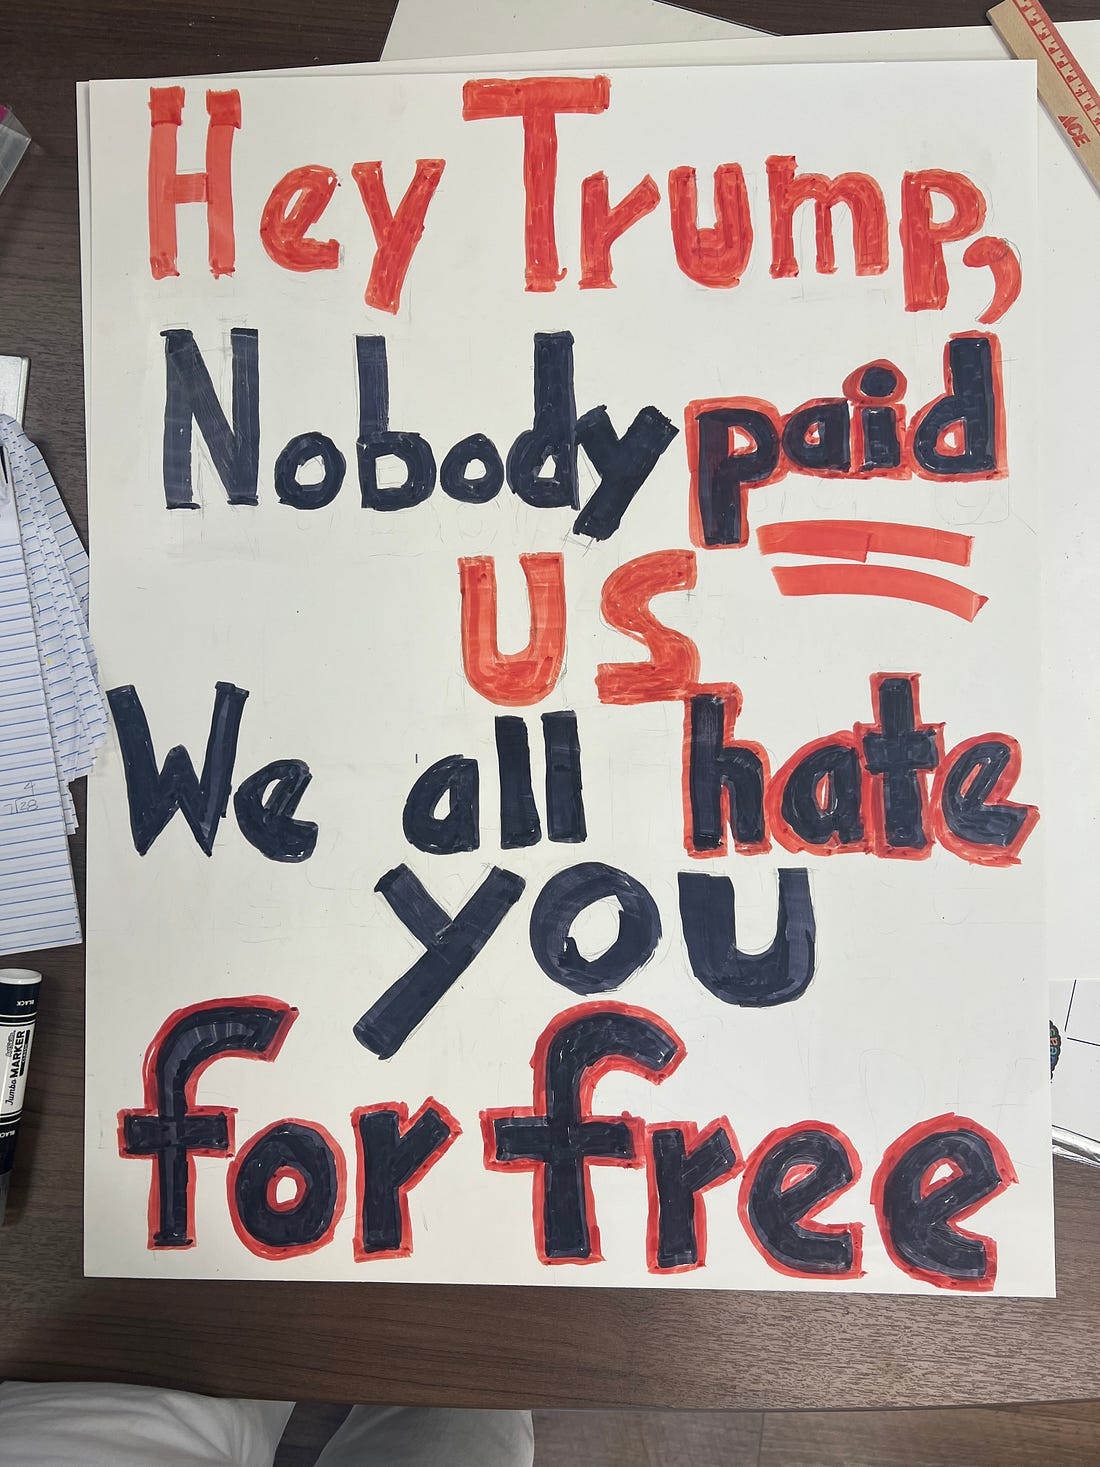 Hey Trump,
Nobody paid
us
We all hate
you
for free
ACE
4
7/28
BLACK
Jumbo MARKER
BLACK